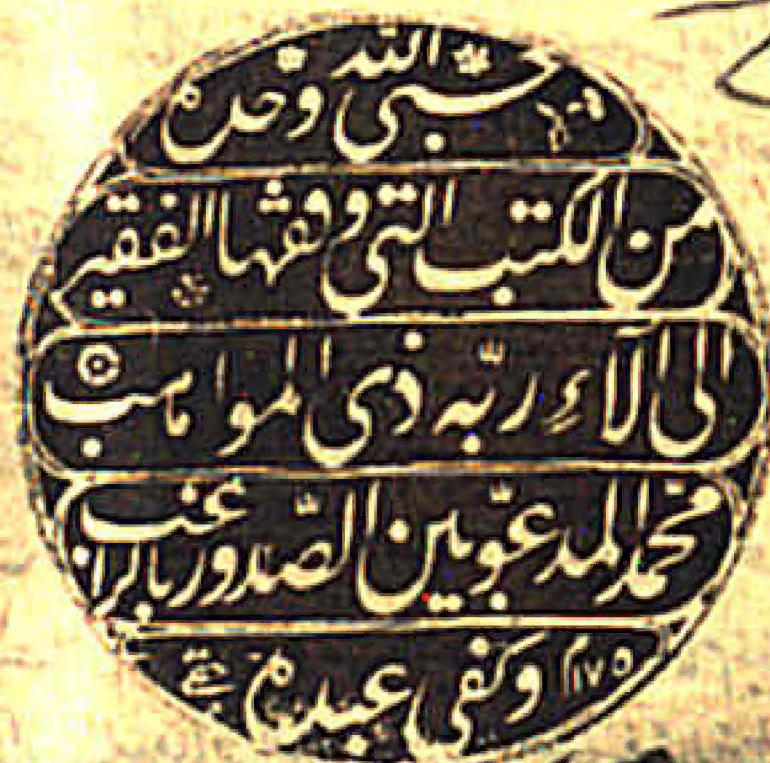 حسبي الله وحده
من الكتب التي وقفها الفقير
الى آلاء ربّه ذى المواهب
محمد المدعوّ بين الصّدور بالراغب
وكفى عبده